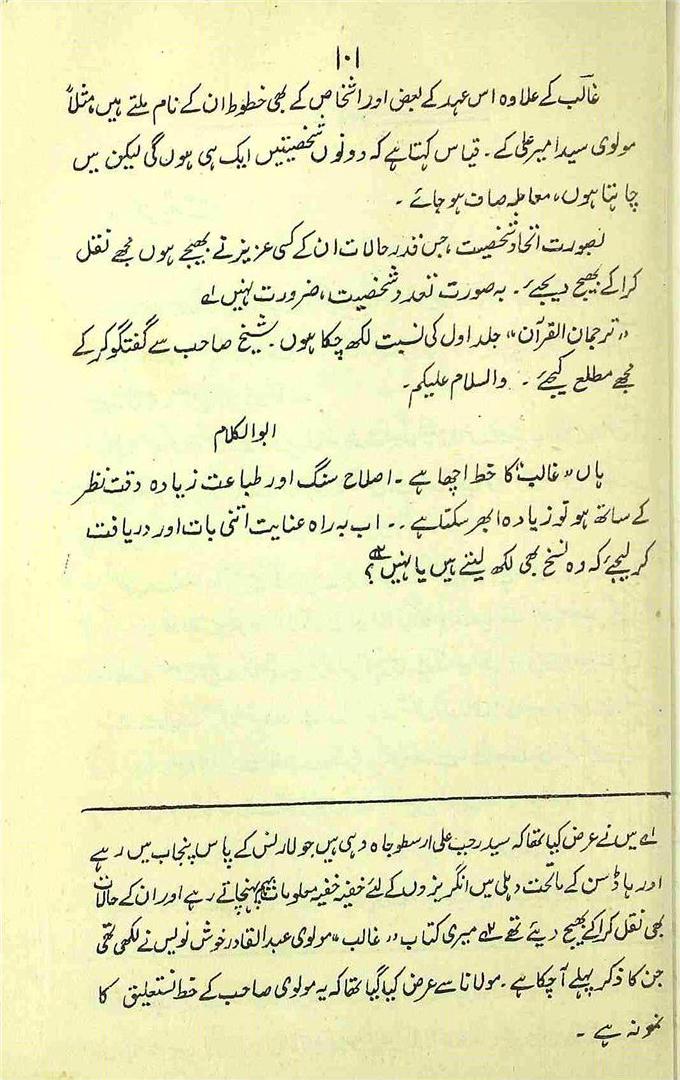 ۱۰۱
غالب کے علاوہ اس عہد کے بعض اور اشخاص کے بھی خطوط ان کے نام ملتے ہیں، مثلاً
مولوی سید امیر علی کے۔ قیاس کہتا ہے کہ دونوں شخصیتیں ایک ہی ہوں گی لیکن میں
چاہتا ہوں، معاملہ صاف ہو جائے۔
بصورت اتحاد شخصیت، جس قدر حالات ان کے کسی عزیز نے بھیجے ہوں مجھے نقل
کرا کے بھیج دیجئے۔ بہ صورت تعدد شخصیت، ضرورت نہیں ۱ے
"ترجمان القرآن" جلد اول کی نسبت لکھ چکا ہوں۔ شیخ صاحب سے گفتگو کر کے
مجھے مطلع کیجئے۔ والسلام علیکم۔
ابوالکلام
ہاں "غالب" کا خط اچھا ہے۔ اصلاح سنگ اور طباعت زیادہ دقت نظر
کے ساتھ ہو تو زیادہ ابھر سکتا ہے۔۔ اب بہ راہ عنایت اتنی بات اور دریافت
کر لیجئے کہ وہ نسخ بھی لکھ لیتے ہیں یا نہیں ۲ے؟
۱ے میں نے عرض کیا تھا کہ سید رجب علی ارسطو جاہ وہی ہیں جو لارنس کے پاس پنجاب میں رہے
اور ہاڈسن کے ماتحت دہلی میں انگریزوں کے لئے خفیہ خفیہ معلومات بہم پہنچاتے رہے اور ان کے حالات
بھی نقل کرا کے بھیج دیئے تھے ۲ے میری کتاب "غالب" مولوی عبدالقادر خوش نویس نے لکھی تھی
جن کا ذکر پہلے آ چکا ہے۔ مولانا سے عرض کیا گیا تھا کہ یہ مولوی صاحب کے خط نستعلیق کا
نمونہ ہے۔